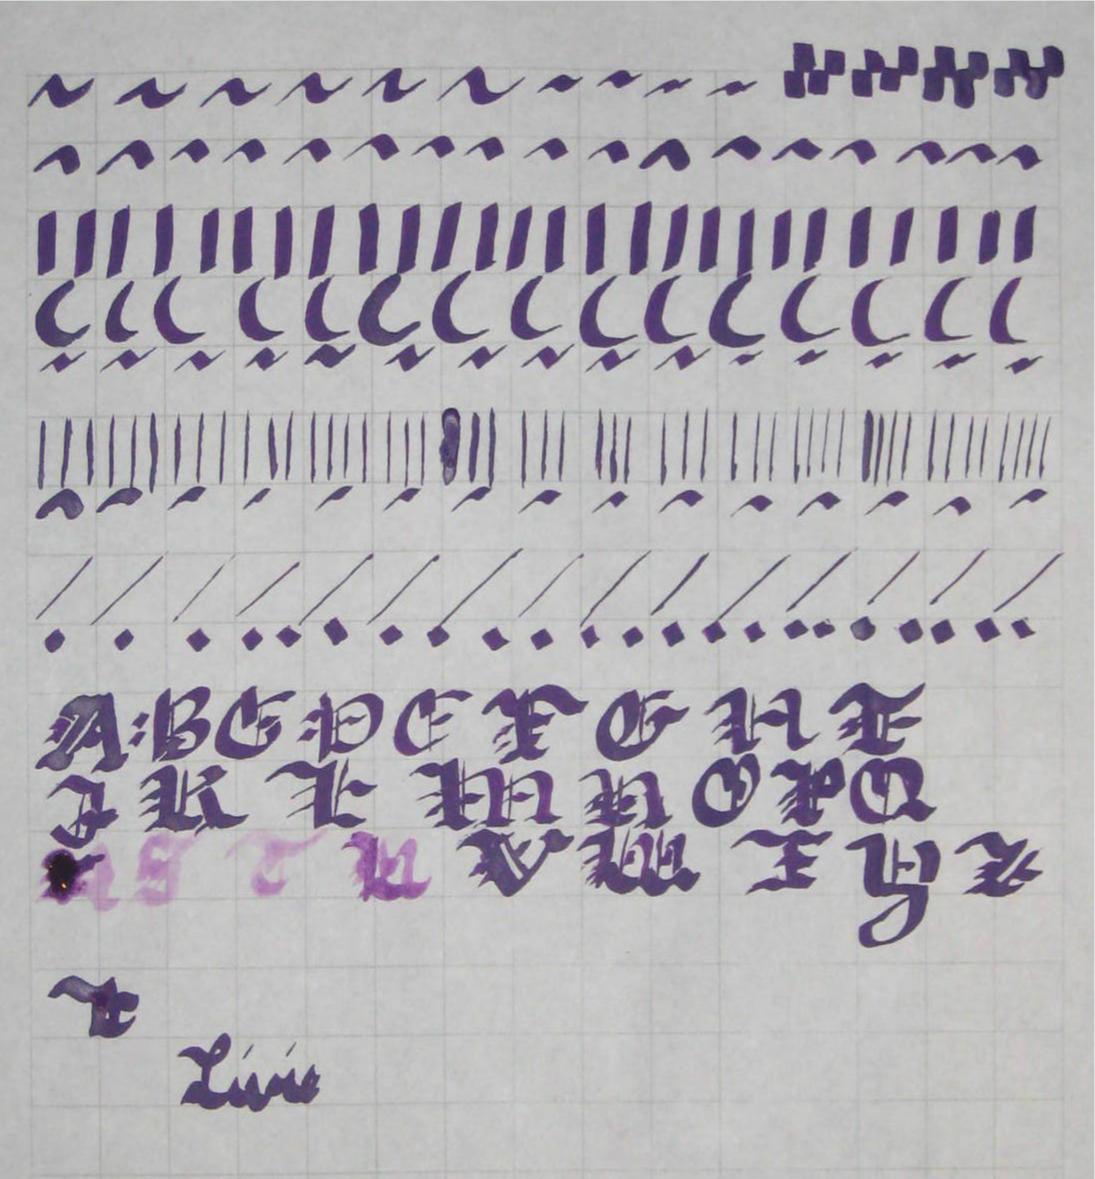 A:B C D E F G H I
J K L M N O P Q
R S T U V W X Y Z